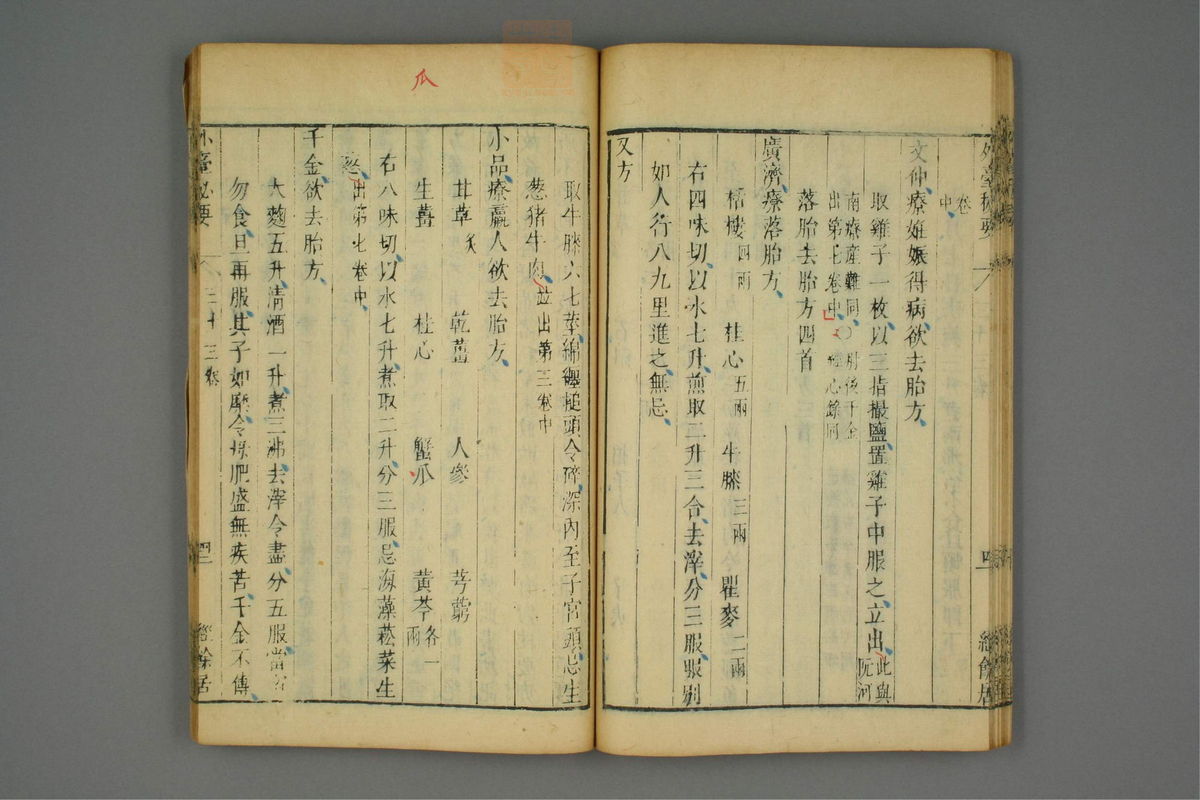 外臺秘要
卷中
文仲療妊娠得病欲去胎方
取雞子一枚以三指撮鹽置雞子中服之立出此與阮河
南療產難同○肘後千金
出第七卷中 經心錄同
落胎去胎方四首
廣濟療落胎方
栝樓四兩 桂心五兩 牛膝三兩 瞿麥二兩
右四味切以水七升煎取二升三合去滓分三服服別
如人行八九里進之無忌
又方
取牛膝六七莖綿纏槌頭令碎深內至子宮頭忌生
葱猪牛肉並出第三卷中
小品療羸人欲去胎方
甘草炙 乾薑 人參 芎藭
生薑 桂心 蟹爪 黃芩各一兩
右八味切以水七升煮取二升分三服忌海藻菘菜生
葱出第七卷中
千金欲去胎方
大麴五升清酒一升煮三沸去滓令盡分五服當宿
勿食旦再服其子如糜令母肥盛無疾苦千金不傳
外臺秘要 三十三卷 四 經餘居
瓜